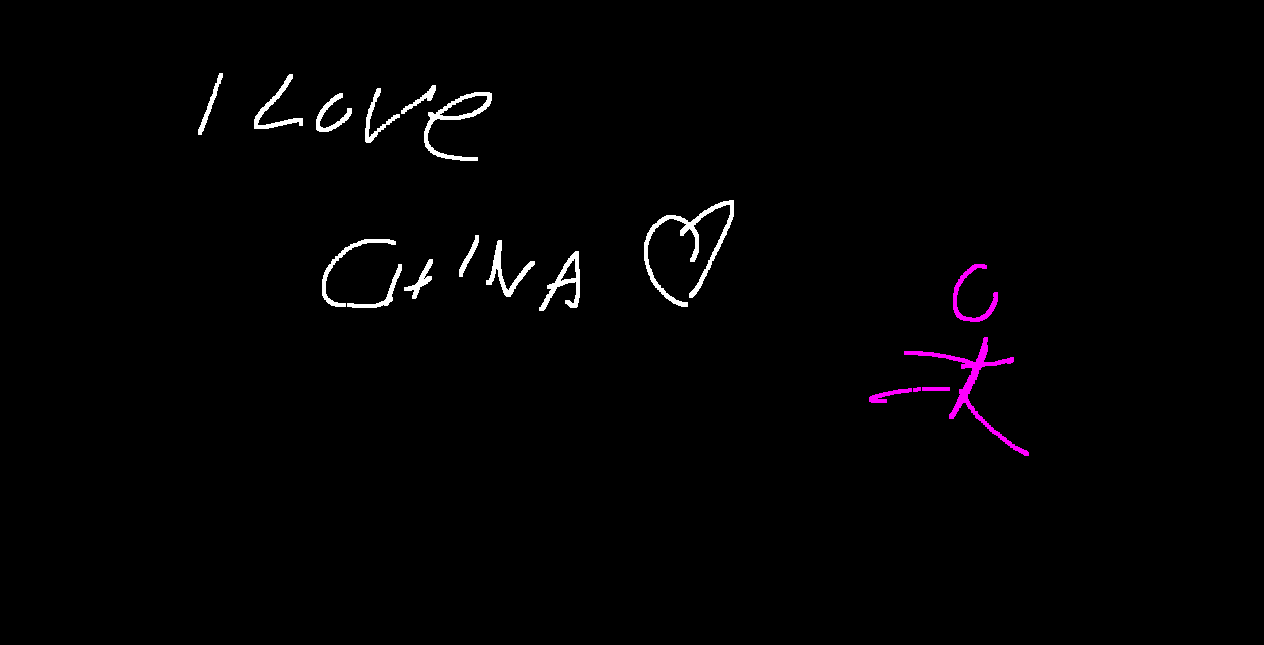 I LOVe
CHINA